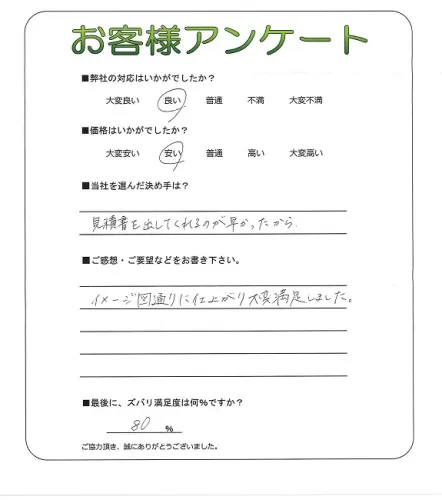 お客様アンケート
■弊社の対応はいかがでしたか?
大変良い 良い 普通 不満 大変不満
■価格はいかがでしたか?
大変安い 安い 普通 高い 大変高い
■当社を選んだ決め手は?
見積書を出してくれるのが早かったから.
■ご感想・ご要望などをお書き下さい。
イメージ図通りに仕上がり大変満足しました。
■最後に、ズバリ満足度は何%ですか?
80 %
ご協力頂き、誠にありがとうございました。